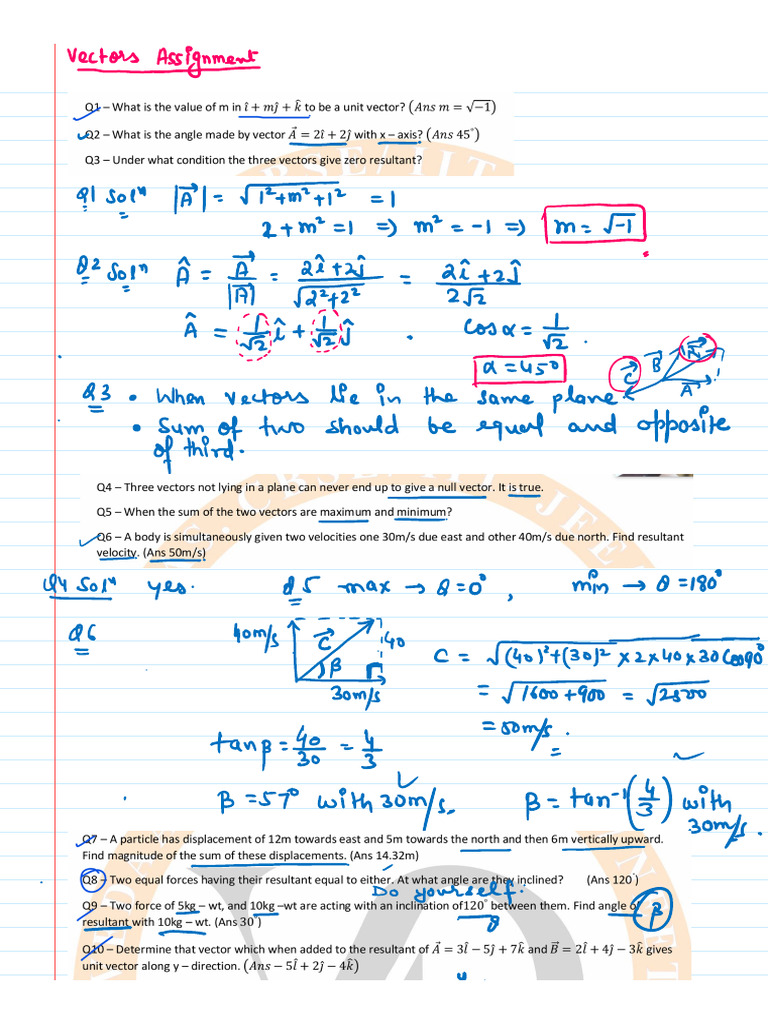 Vectors Assignment
Q1 – What is the value of m in î + mĵ + k̂ to be a unit vector? (Ans m = √−1)
Q2 – What is the angle made by vector A⃗ = 2î + 2ĵ with x – axis? (Ans 45°)
Q3 – Under what condition the three vectors give zero resultant?
Q1 Solⁿ |A⃗| = √1²+m²+1² = 1
2+m²=1 => m² = -1 => m = √-1
Q2 Solⁿ Â = A⃗/|A⃗| = 2î+2ĵ/√2²+2² = 2î+2ĵ/2√2
Â = 1/√2 î + 1/√2 ĵ . cos α = 1/√2 .
α = 45°
C⃗ B⃗ R⃗ A⃗
Q3 • When vectors lie in the same plane
• Sum of two should be equal and opposite
of third.
Q4 – Three vectors not lying in a plane can never end up to give a null vector. It is true.
Q5 – When the sum of the two vectors are maximum and minimum?
Q6 – A body is simultaneously given two velocities one 30m/s due east and other 40m/s due north. Find resultant
velocity. (Ans 50m/s)
Q4 Solⁿ yes. Q5 max → θ=0° , min → θ=180°
Q6 40m/s C⃗ 40 β 30m/s
C = √(40)²+(30)² × 2×40×30 Cos90°
= √1600+900 = √2500
= 50m/s.
tanβ = 40/30 = 4/3
β = 57° with 30m/s. β = tan⁻¹(4/3) with
30m/s.
Q7 – A particle has displacement of 12m towards east and 5m towards the north and then 6m vertically upward.
Find magnitude of the sum of these displacements. (Ans 14.32m)
Q8 – Two equal forces having their resultant equal to either. At what angle are they inclined? (Ans 120°)
Do yourself.
Q9 – Two force of 5kg – wt, and 10kg –wt are acting with an inclination of120° between them. Find angle of
resultant with 10kg – wt. (Ans 30°)
β
Q10 – Determine that vector which when added to the resultant of A⃗ = 3î − 5ĵ + 7k̂ and B⃗ = 2î + 4ĵ − 3k̂ gives
unit vector along y – direction. (Ans − 5î + 2ĵ − 4k̂)